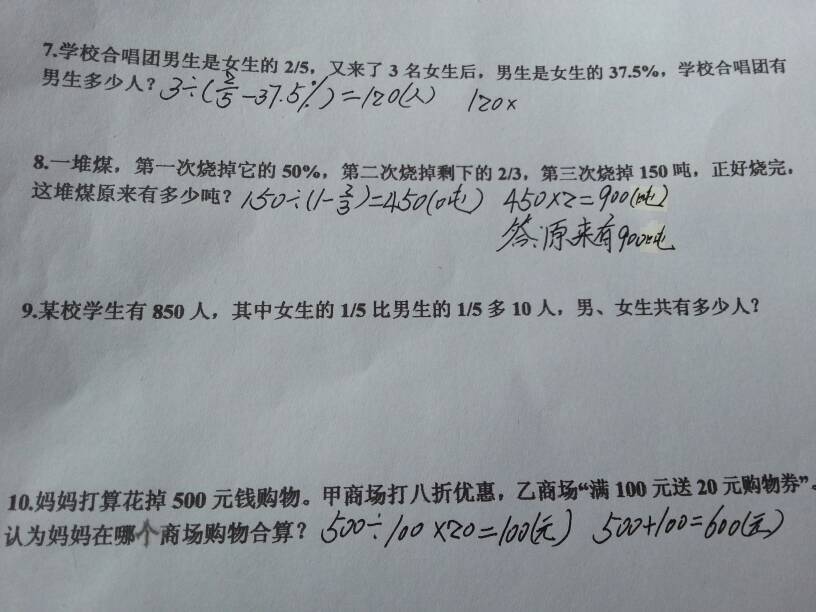 7.学校合唱团男生是女生的 2/5，又来了 3 名女生后，男生是女生的 37.5%，学校合唱团有
男生多少人？3÷(2/5-37.5%)=120(人) 120×
8.一堆煤，第一次烧掉它的 50%，第二次烧掉剩下的 2/3，第三次烧掉 150 吨，正好烧完，
这堆煤原来有多少吨？150÷(1-2/3)=450(吨) 450×2=900(吨)
答:原来有900吨
9.某校学生有 850 人，其中女生的 1/5 比男生的 1/5 多 10 人，男、女生共有多少人？
10.妈妈打算花掉 500 元钱购物。甲商场打八折优惠，乙商场“满 100 元送 20 元购物券”。
认为妈妈在哪个商场购物合算？500÷100×20=100(元) 500+100=600(元)